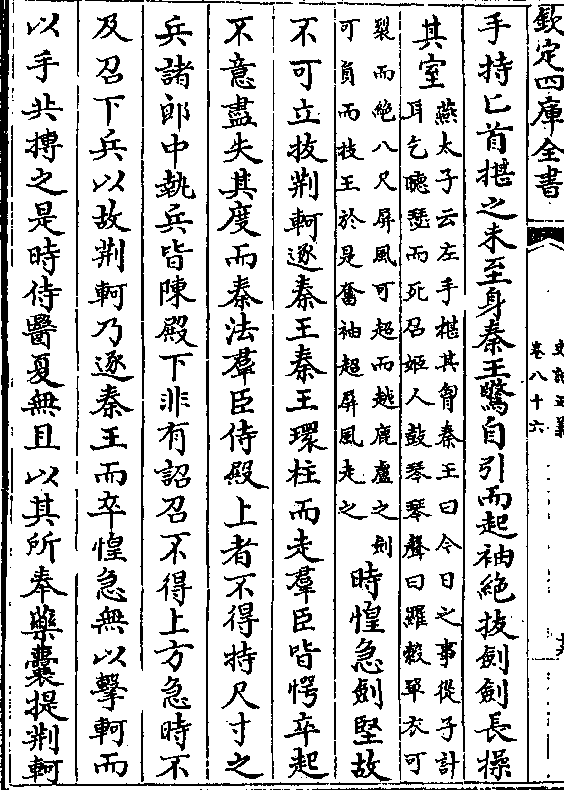 欽定四庫全書
史記正義
卷八十六
手持匕首揕之未至身秦王驚自引而起袖絶拔劍劍長操
其室
燕太子云左手揕其胷秦王曰今日之事從子計
耳乞聽瑟而死召姬人鼓琴琴聲曰羅縠單衣可
裂而絶八尺屏風可超而越鹿盧之劍
可負而拔王於是奮袖超屏風走之
時惶急劍堅故
不可立拔荆軻逐秦王秦王環柱而走羣臣皆愕卒起
不意盡失其度而秦法羣臣侍殿上者不得持尺寸之
兵諸郎中執兵皆陳殿下非有詔召不得上方急時不
及召下兵以故荆軻乃逐秦王而卒惶急無以擊軻而
以手共搏之是時侍醫夏無且以其所奉藥囊提荆軻